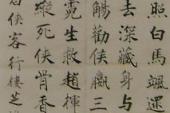 照白馬颯
去深藏身与
觴勸侯嬴三
霓生救趙揮
縱死俠骨香
俠客行